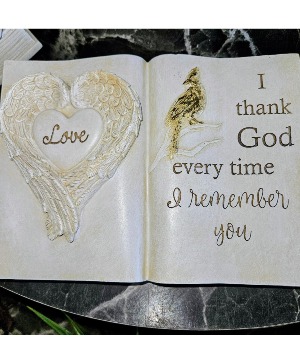 Love
I
thank
God
every time
I remember
you